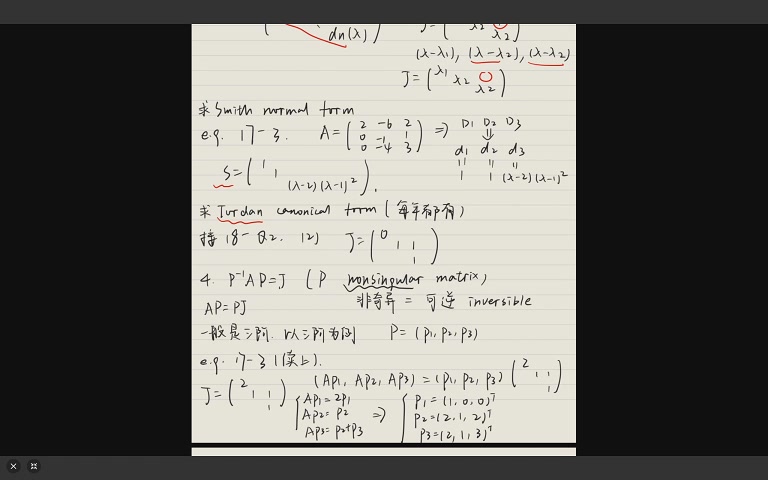 dn(λ)
(λ-λ1), (λ-λ2), (λ-λ2)
J=(λ1 λ2 λ2)
求 Smith normal form
e.g. 17-3. A=(2 -6 2 0 -1 1 0 -4 3) ⇒ D1 D2 D3
⇓
d1 d2 d3
" " "
1 1 (λ-2)(λ-1)²
S=(1 1 (λ-2)(λ-1)²).
求 Jordan canonical form (每年都有)
接 18- Q2. (2) J=(0 1 1 1)
4. P⁻¹AP=J (P nonsingular matrix)
非奇异 = 可逆 inversible
AP=PJ
一般是三阶. 以三阶为例 P=(p1, p2, p3)
e.g. 17-3 (续上).
J=(2 1 1 1) (Ap1, Ap2, Ap3) = (p1, p2, p3)(2 1 1 1)
Ap1=2p1 ⇒ p1=(1, 0, 0)ᵀ
Ap2=p2 p2=(2, 1, 2)ᵀ
Ap3=p2+p3 p3=(2, 1, 3)ᵀ